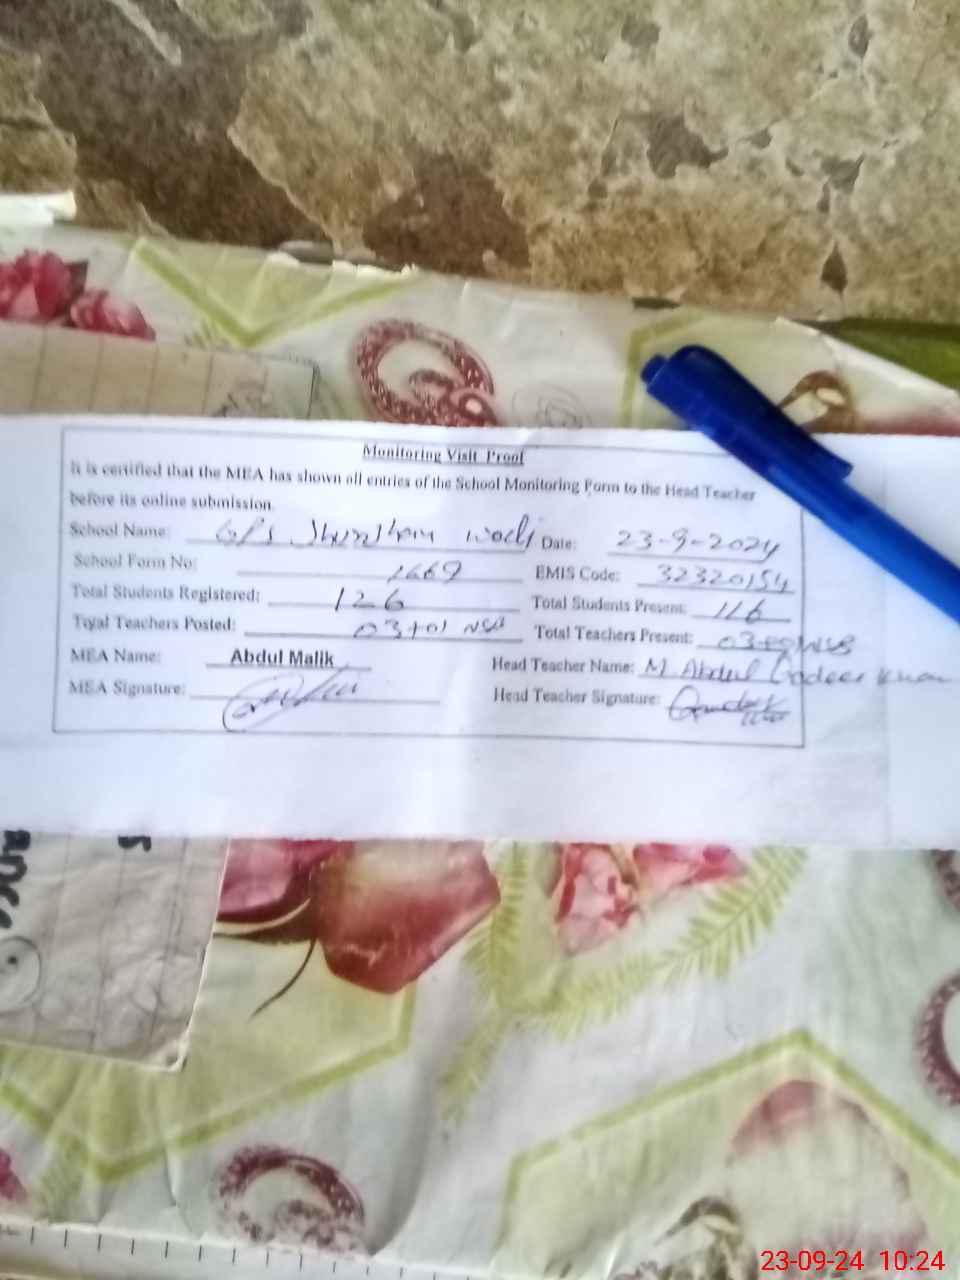 Monitoring Visit Proof
It is certified that the MEA has shown all entries of the School Monitoring Form to the Head Teacher
before its online submission.
School Name: GPS Date: 23-9-2024
School Form No: 1669 EMIS Code: 32320154
Total Students Registered: 126 Total Students Present: 116
Total Teachers Posted: 03+01 Total Teachers Present:
MEA Name: Abdul Malik Head Teacher Name: M Abdul Qadeer Khan
MEA Signature: Head Teacher Signature:
23-09-24 10:24